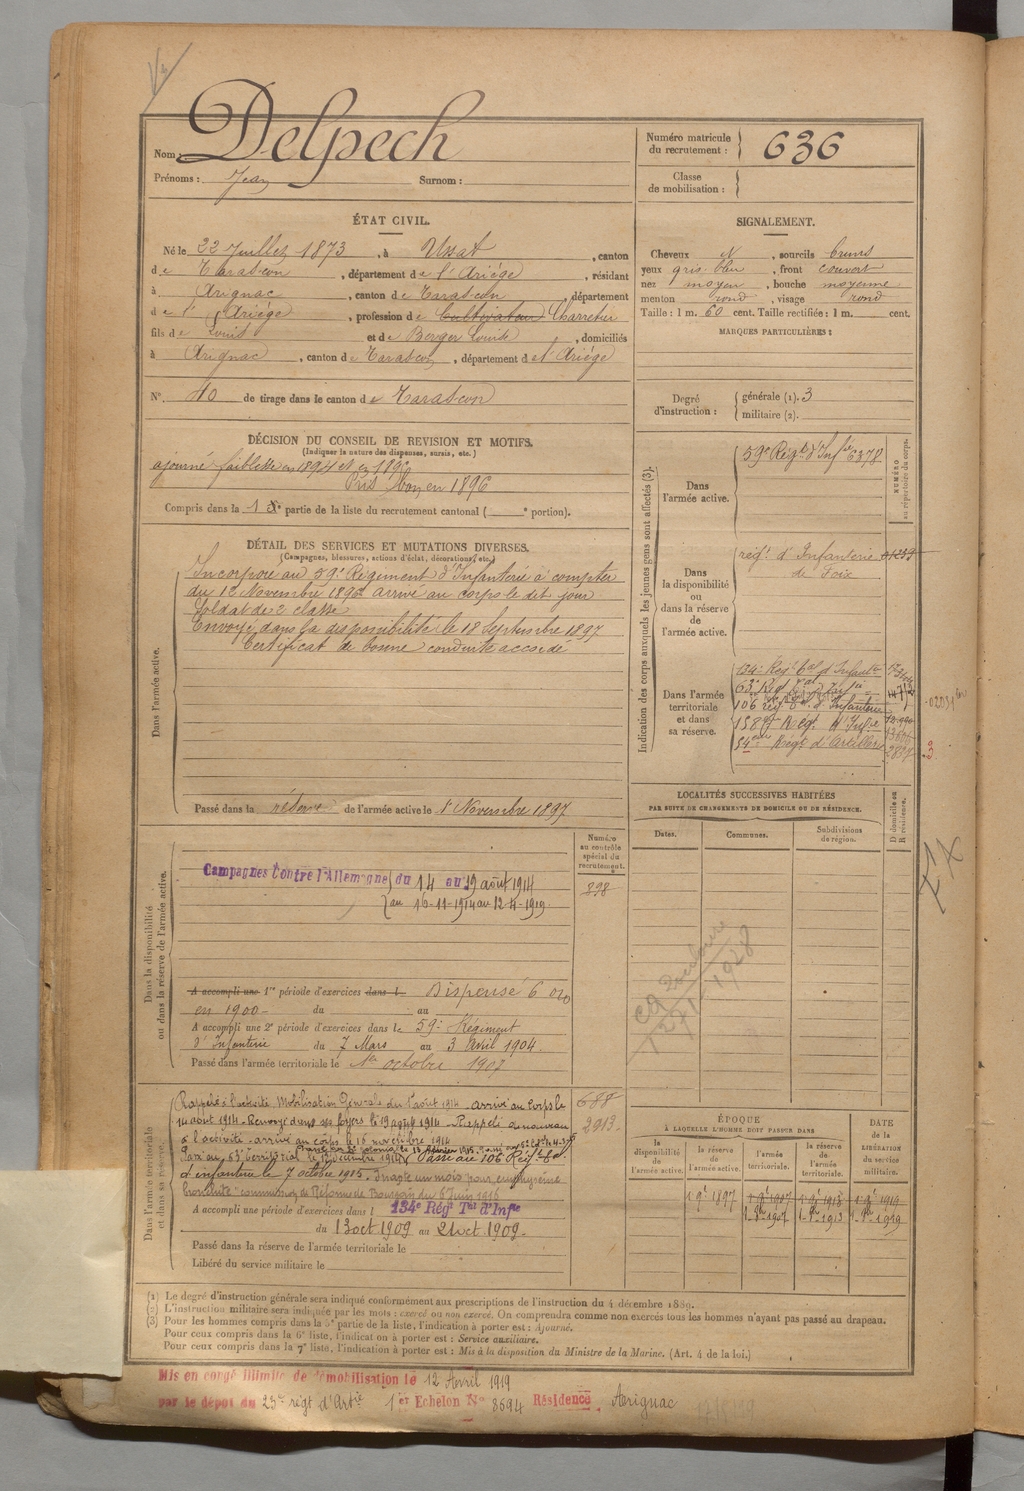 Delpech
Nom :
Prénoms : Jean Surnom :
Numéro matricule
du recrutement : 636
Classe
de mobilisation :
ÉTAT CIVIL.
Né le 22 Juillet 1873, à Ussat, canton
de Tarascon, département de l'Ariége, résidant
à Arignac, canton de Tarascon, département
de l'Ariége, profession de Cultivateur Charretier
fils de Louis et de Berger Louise, domiciliés
à Arignac, canton de Tarascon, département de l'Ariége
N° 40 de tirage dans le canton de Tarascon
SIGNALEMENT.
Cheveux N, sourcils bruns
yeux gris-bleu, front couvert
nez moyen, bouche moyenne
menton rond, visage rond
Taille : 1 m. 60 cent. Taille rectifiée : 1 m. cent.
MARQUES PARTICULIÈRES :
Degré
d'instruction :
générale (1). 3
militaire (2).
DÉCISION DU CONSEIL DE REVISION ET MOTIFS.
(Indiquer la nature des dispenses, sursis, etc.)
ajourné faiblesse en 1894 et en 1895
Pris bon en 1896
Compris dans la 1re partie de la liste du recrutement cantonal ( e portion).
DÉTAIL DES SERVICES ET MUTATIONS DIVERSES.
(Campagnes, blessures, actions d'éclat, décorations, etc.)
Dans l'armée active.
Incorporé au 59e Régiment d'Infanterie à compter
du 12 Novembre 1896 arrivé au corps le dit jour
Soldat de 2e classe
Envoyé dans la disponibilité le 18 Septembre 1897
Certificat de bonne conduite accordé
Passé dans la réserve de l'armée active le 1er Novembre 1897
Indication des corps auxquels les jeunes gens sont affectés (3).
NUMÉRO
au répertoire du corps.
Dans
l'armée active.
59e Régt d'Infie 6378
Dans
la disponibilité
ou
dans la réserve
de
l'armée active.
régt d'Infanterie
de Foix
Dans l'armée
territoriale
et dans
sa réserve.
134e Régt tal d'Infante
63e Régt tal d'Infie
106 régt tal d'Infanterie
158e Régt d'Infie
54e Régt d'Artillerie
LOCALITÉS SUCCESSIVES HABITÉES
PAR SUITE DE CHANGEMENTS DE DOMICILE OU DE RÉSIDENCE.
Dates. Communes. Subdivisions
de région.
D domicile ou
R résidence.
Dans la disponibilité
ou dans la réserve de l'armée active.
Numéro
au contrôle
spécial du
recrutement.
898
Campagnes Contre l'Allemagne du 14 au 19 août 1914
au 16-11-1914 au 12-4-1919
A accompli une 1re période d'exercices dans l Dispensé 6 010
en 1900 du au
A accompli une 2e période d'exercices dans le 59e Régiment
d'Infanterie du 7 Mars au 3 Avril 1904.
Passé dans l'armée territoriale le 1er octobre 1907
Dans l'armée territoriale
et dans sa réserve.
688
2913
Rappelé à l'activité Mobilisation Générale du 1er août 1914 - arrivé au Corps le
14 aout 1914 - Renvoyé dans ses foyers le 19 août 1914 - Rappelé de nouveau
à l'activité - arrivé au corps le 16 novembre 1914
Passé au 63e Territorial le 12 décembre 1914 Passé au 106 Régt tal
d'infanterie le 7 octobre 1915. Inapte un mois pour emphysème
bronchite commission de Réforme de Bourgoin du 6 Juin 1916
A accompli une période d'exercices dans l 134e Régt Tal d'Infie
du 13 oct 1909 au 21 oct 1909.
Passé dans la réserve de l'armée territoriale le
Libéré du service militaire le
ÉPOQUE
À LAQUELLE L'HOMME DOIT PASSER DANS
la
disponibilité
de
l'armée active.
la réserve
de
l'armée active.
l'armée
territoriale.
la réserve
de
l'armée
territoriale.
DATE
de la
LIBÉRATION
du service
militaire.
1er 9bre 1897 1er 9bre 1907 1er 9bre 1913 1er 9bre 1919
1er 8bre 1907 1er 8bre 1913 1er 8bre 1919
(1) Le degré d'instruction générale sera indiqué conformément aux prescriptions de l'instruction du 4 décembre 1889.
(2) L'instruction militaire sera indiquée par les mots : exercé ou non exercé. On comprendra comme non exercés tous les hommes n'ayant pas passé au drapeau.
(3) Pour les hommes compris dans la 5e partie de la liste, l'indication à porter est : Ajourné.
Pour ceux compris dans la 6e liste, l'indication à porter est : Service auxiliaire.
Pour ceux compris dans la 7e liste, l'indication à porter est : Mis à la disposition du Ministre de la Marine. (Art. 4 de la loi.)
Mis en congé illimité de démobilisation le 12 Avril 1919
par le dépôt du 23e régt d'Artie 1er Echelon N° 8694 Résidence Arignac